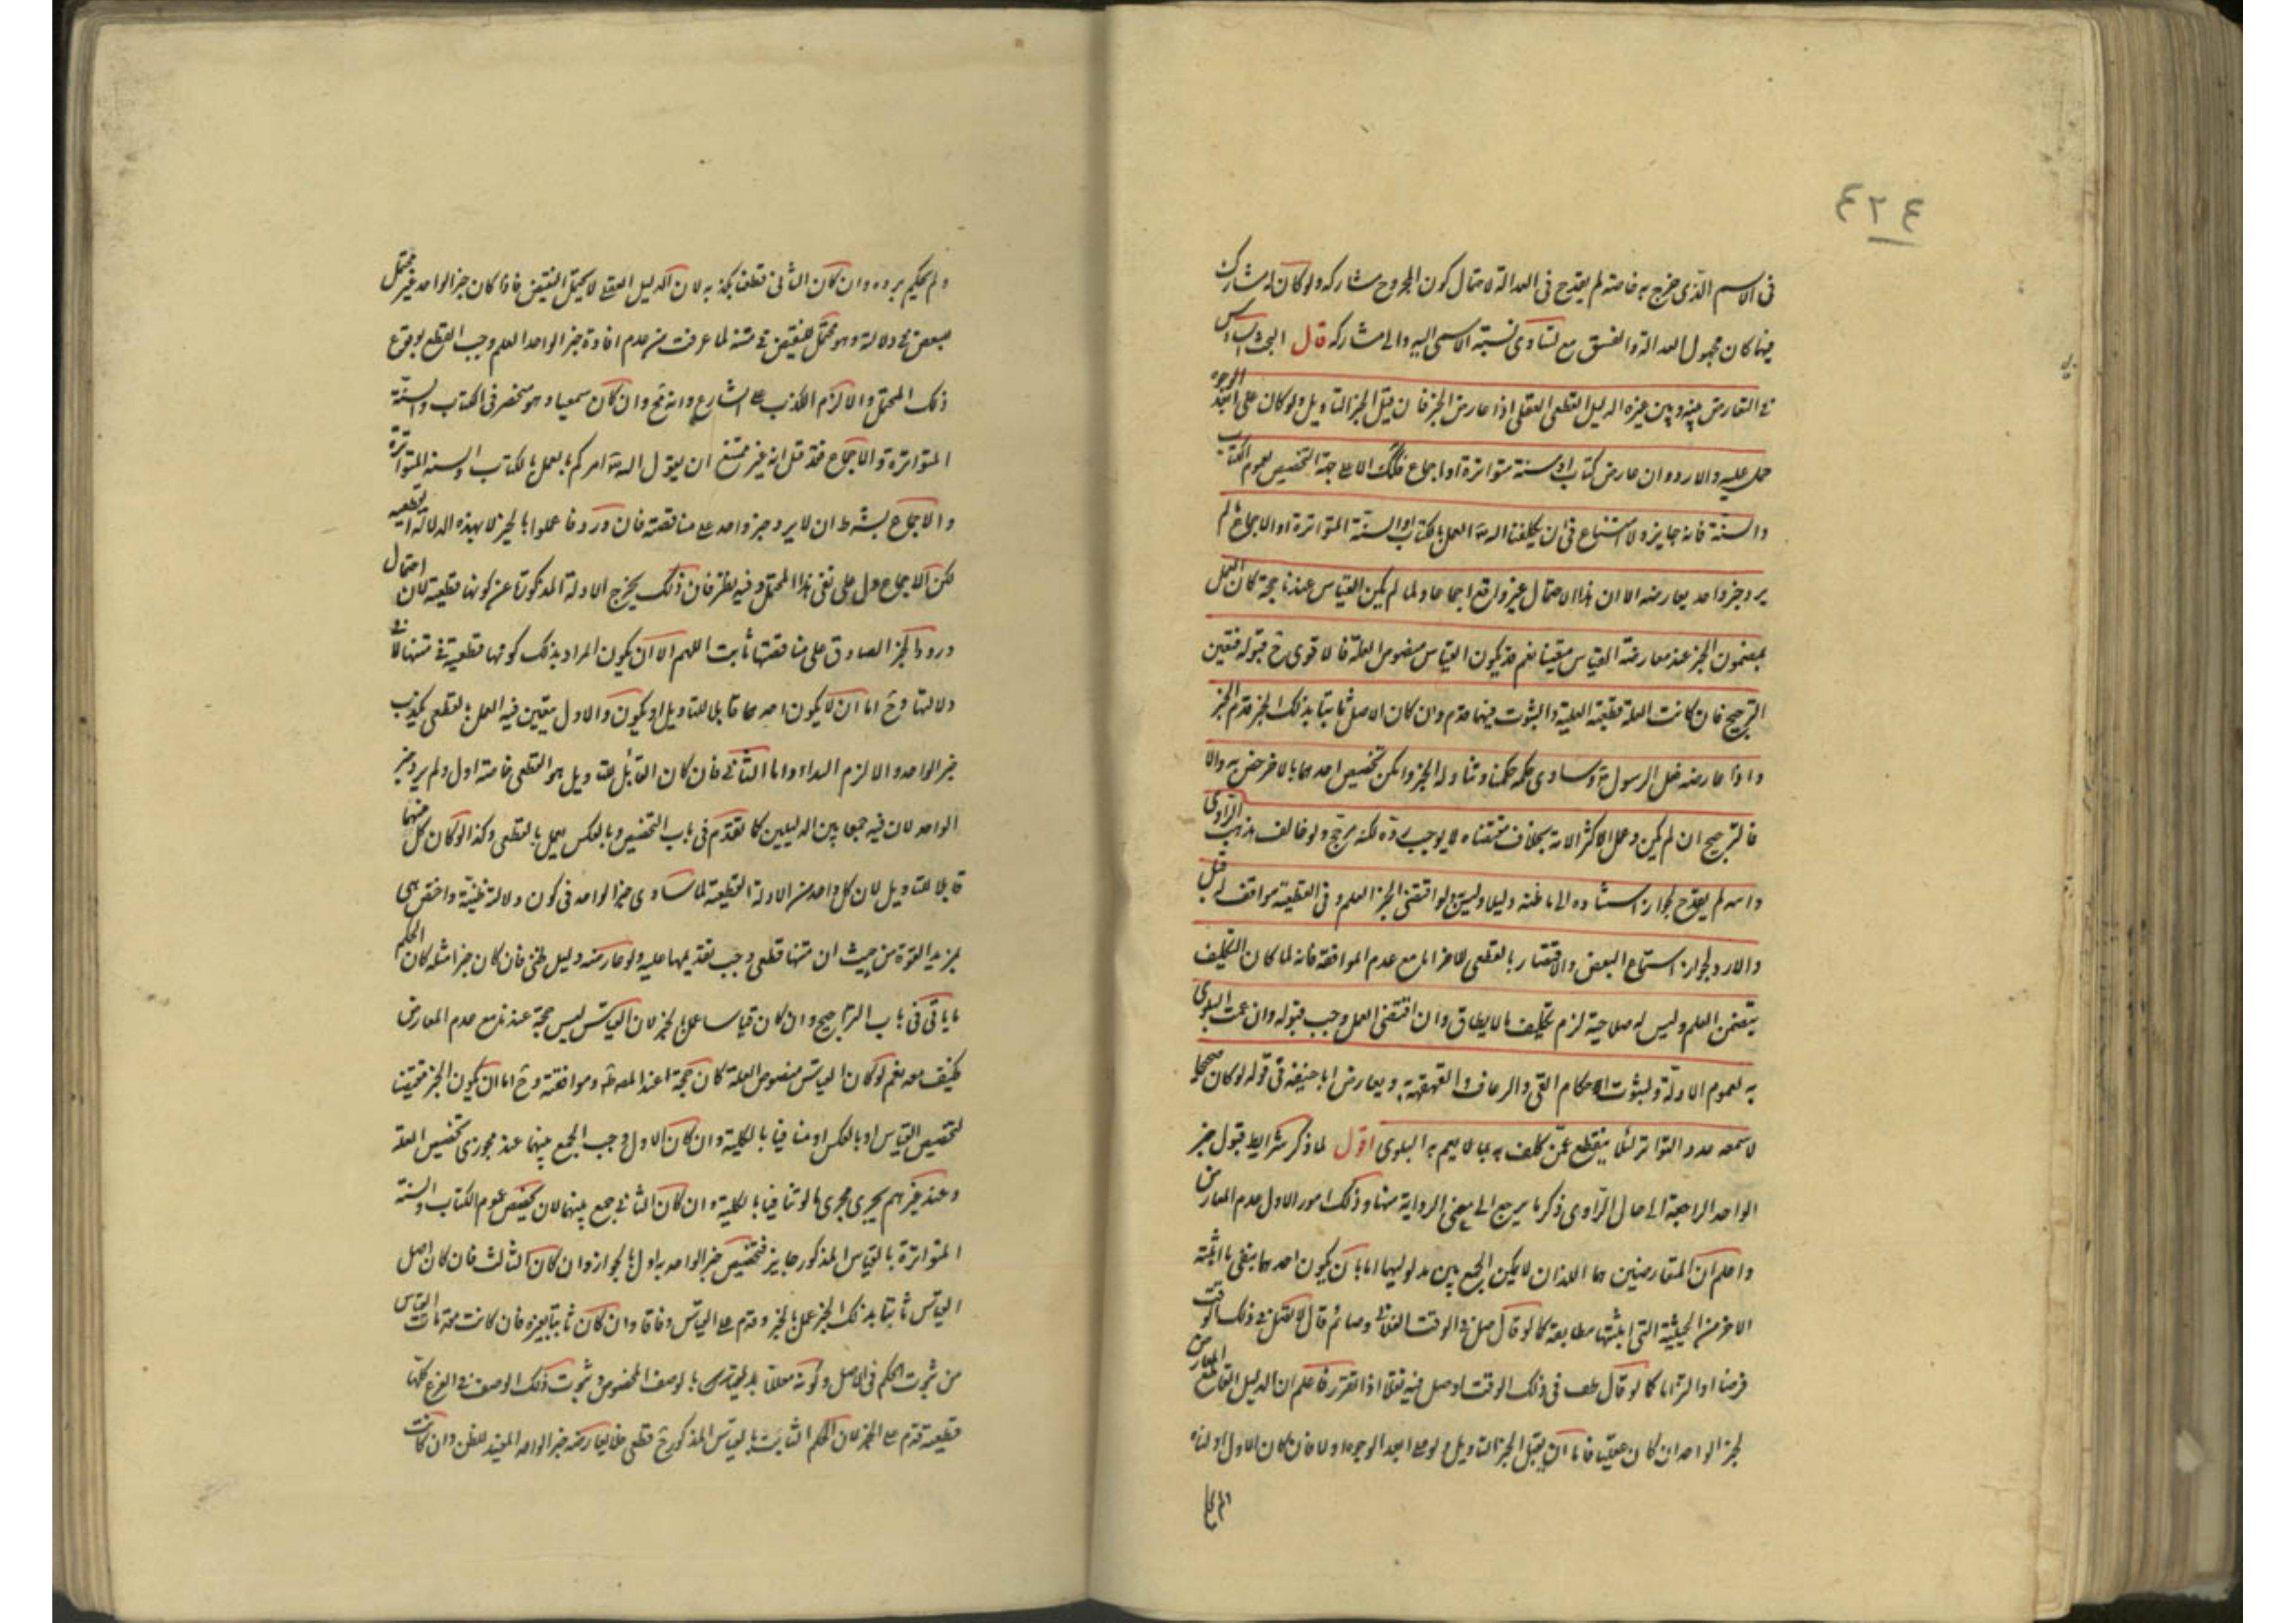 ٤٢٤
فى الاسم الذى خرج به خاصة لم يقدح فى العدالة لاحتمال كون المجروح مشاركه ولو كان له مشارك
فيها كان مجهول العدالة والفسق مع تساوى نسبة الاسم اليه والى مشاركه قال البحث السادس
فى التعارض بينه وبين غيره الدليل القطعى العقلى اذا عارض الخبر فان قبل الخبر التاويل ولو كان على ابعد الوجوه
حمل عليه والا رد وان عارض كتاب او سنة متواترة او اجماع فكذلك الا على جهة التخصيص لعموم الكتاب
والسنة فانه جايز ولا امتناع فى ان يكلفنا الله العمل بالكتاب او السنة المتواترة او الاجماع ما لم
يرد خبر واحد يعارضه الا ان هذا الاحتمال غير واقع اجماعا ولما لم يكن القياس عندنا حجة كان العمل
بمضمون الخبر عند معارضة القياس متعينا نعم قد يكون القياس منصوص العلة فالاقوى ح قبوله فتعين
الترجيح فان كانت العلة قطعية العلية والثبوت فيهما قدم وان كان الاصل ثابتا بذلك الخبر قدم الخبر
واذا عارضه فعل الرسول وساوى حكمه حكمنا وتناوله الخبر وامكن تخصيص احدهما بالاخر خص به والا
فالترجيح ان لم يكن وعمل الاكثر الامة بخلاف مقتضاه لا يوجب رده لكنه مرجح ولو خالف مذهب الراوى
واسه لم يقدح لجواز استناده الى ما ظنه دليلا وليس ولو اقتضى الخبر العلم وفى القطعية موافق له قبل
والا رد لجواز استماع البعض والاقتصار بالقطعى للاخر اما مع عدم الموافقة فانه لما كان التكليف
يتضمن العلم وليس له صلاحية لزم تكليف ما لا يطاق وان اقتضى العمل وجب قبوله وان عمت البلوى
به لعموم الادلة ولثبوت احكام القى والرعاف والقهقهة ويعارض ابا حنيفة فى قوله لو كان صحيحا
لاسمعه عدد التواتر لئلا ينقطع عمن كلف به بما لا يعم به البلوى اقول لما ذكر شرايط قبول خبر
الواحد الراجعة الى حال الراوى ذكر ما يرجع الى معنى الرواية منها وذلك امور الاول عدم المعارض
واعلم ان المتعارضين هما اللذان لا يمكن الجمع بين مدلوليهما اما بان يكون احدهما ينفى ما اثبته
الاخر من الحيثية التى اثبتها مطابقة كما لو قال صل فى الوقت الفلانى وصائم قال لا تصل فى ذلك الوقت
فرضا او التزاما كما لو قال طف فى ذلك الوقت او صل فيه نفلا اذا تقرر فاعلم ان الدليل القاطع المعارض
لخبر الواحد ان كان عقليا فاما ان يقبل الخبر التاويل ولو على ابعد الوجوه او لا فان كان الاول اولناه
ولم يحكم برده وان كان الثانى قطعنا بكذبه لان الدليل العقلى لا يحتمل النقيض فاذا كان خبر الواحد غير محتمل
للبعض فى دلالته وهو محتمل للنقيض فى متنه لما عرفت من عدم افادة خبر الواحد العلم وجب القطع بوقوع
ذلك المحتمل والا لزم الكذب على الشارع وانه مح وان كان سمعيا وهو منحصر فى الكتاب والسنة
المتواترة والاجماع فقد قيل انه غير ممتنع ان يقول الله امركم بالعمل بالكتاب والسنة المتواترة
والاجماع بشرط ان لا يرد خبر واحد على مناقضته فان ورد فاعملوا بالخبر لا بهذه الدلالة القطعية
لكن الاجماع دل على نفى هذا المحتمل وفيه نظر فان ذلك يخرج الادلة المذكورة عن كونها قطعية لان احتمال
ورود الخبر الصادق على مناقضتها ثابت اللهم الا ان يكون المراد بذلك كونها قطعية فى متنها لا فى
دلالتها وح اما ان لا يكون احدهما قابلا للتاويل او يكون والاول يتعين فيه العمل بالقطعى بكذب
خبر الواحد والا لزم البداء واما الثانى فان كان القابل للتاويل هو القطعى خاصة اول ولم يرد خبر
الواحد لان فيه جمعا بين الدليلين كما تقدم فى باب التخصيص وبالعكس يعمل بالقطعى وكذا لو كان كل منهما
قابلا للتاويل لان كل واحد من الادلة القطعية لما ساوى خبر الواحد فى كون دلالته ظنية واختص هى
بمزيد القوة من حيث ان متنها قطعى وجب تقديمها عليه ولو عارضه دليل ظنى فان كان خبرا مثله كان الحكم
ما ياتى فى باب التراجيح وان كان قياسا عمل بالخبر لان القياس ليس حجة عندنا مع عدم المعارض
فكيف معه نعم لو كان القياس منصوص العلة كان حجة عند المصنف وموافقته وح اما ان يكون الخبر مقتضيا
لتخصيص القياس او بالعكس او متنافيا بالكلية وان كان الاول وجب الجمع بينهما عند مجوزى تخصيص العلة
وعند غيرهم يجرى مجرى ما لو تنافيا بالكلية وان كان الثانى جمع بينهما لان تخصيص عموم الكتاب والسنة
المتواترة بالقياس المذكور جايز فتخصيص خبر الواحد به اولى بالجواز وان كان الثالث فان كان اصل
القياس ثابتا بذلك الخبر عمل بالخبر وقدم على القياس وفاقا وان كان ثابتا بغيره فان كانت مقدمات القياس
من ثبوت الحكم فى الاصل وكونه معللا بالوصف المخصوص وثبوت ذلك الوصف فى الفرع كلها
قطعية قدم على الخبر لان الحكم الثابت بالقياس المذكور ح قطعى فلا يعارضه خبر الواحد المفيد للظن وان كانت